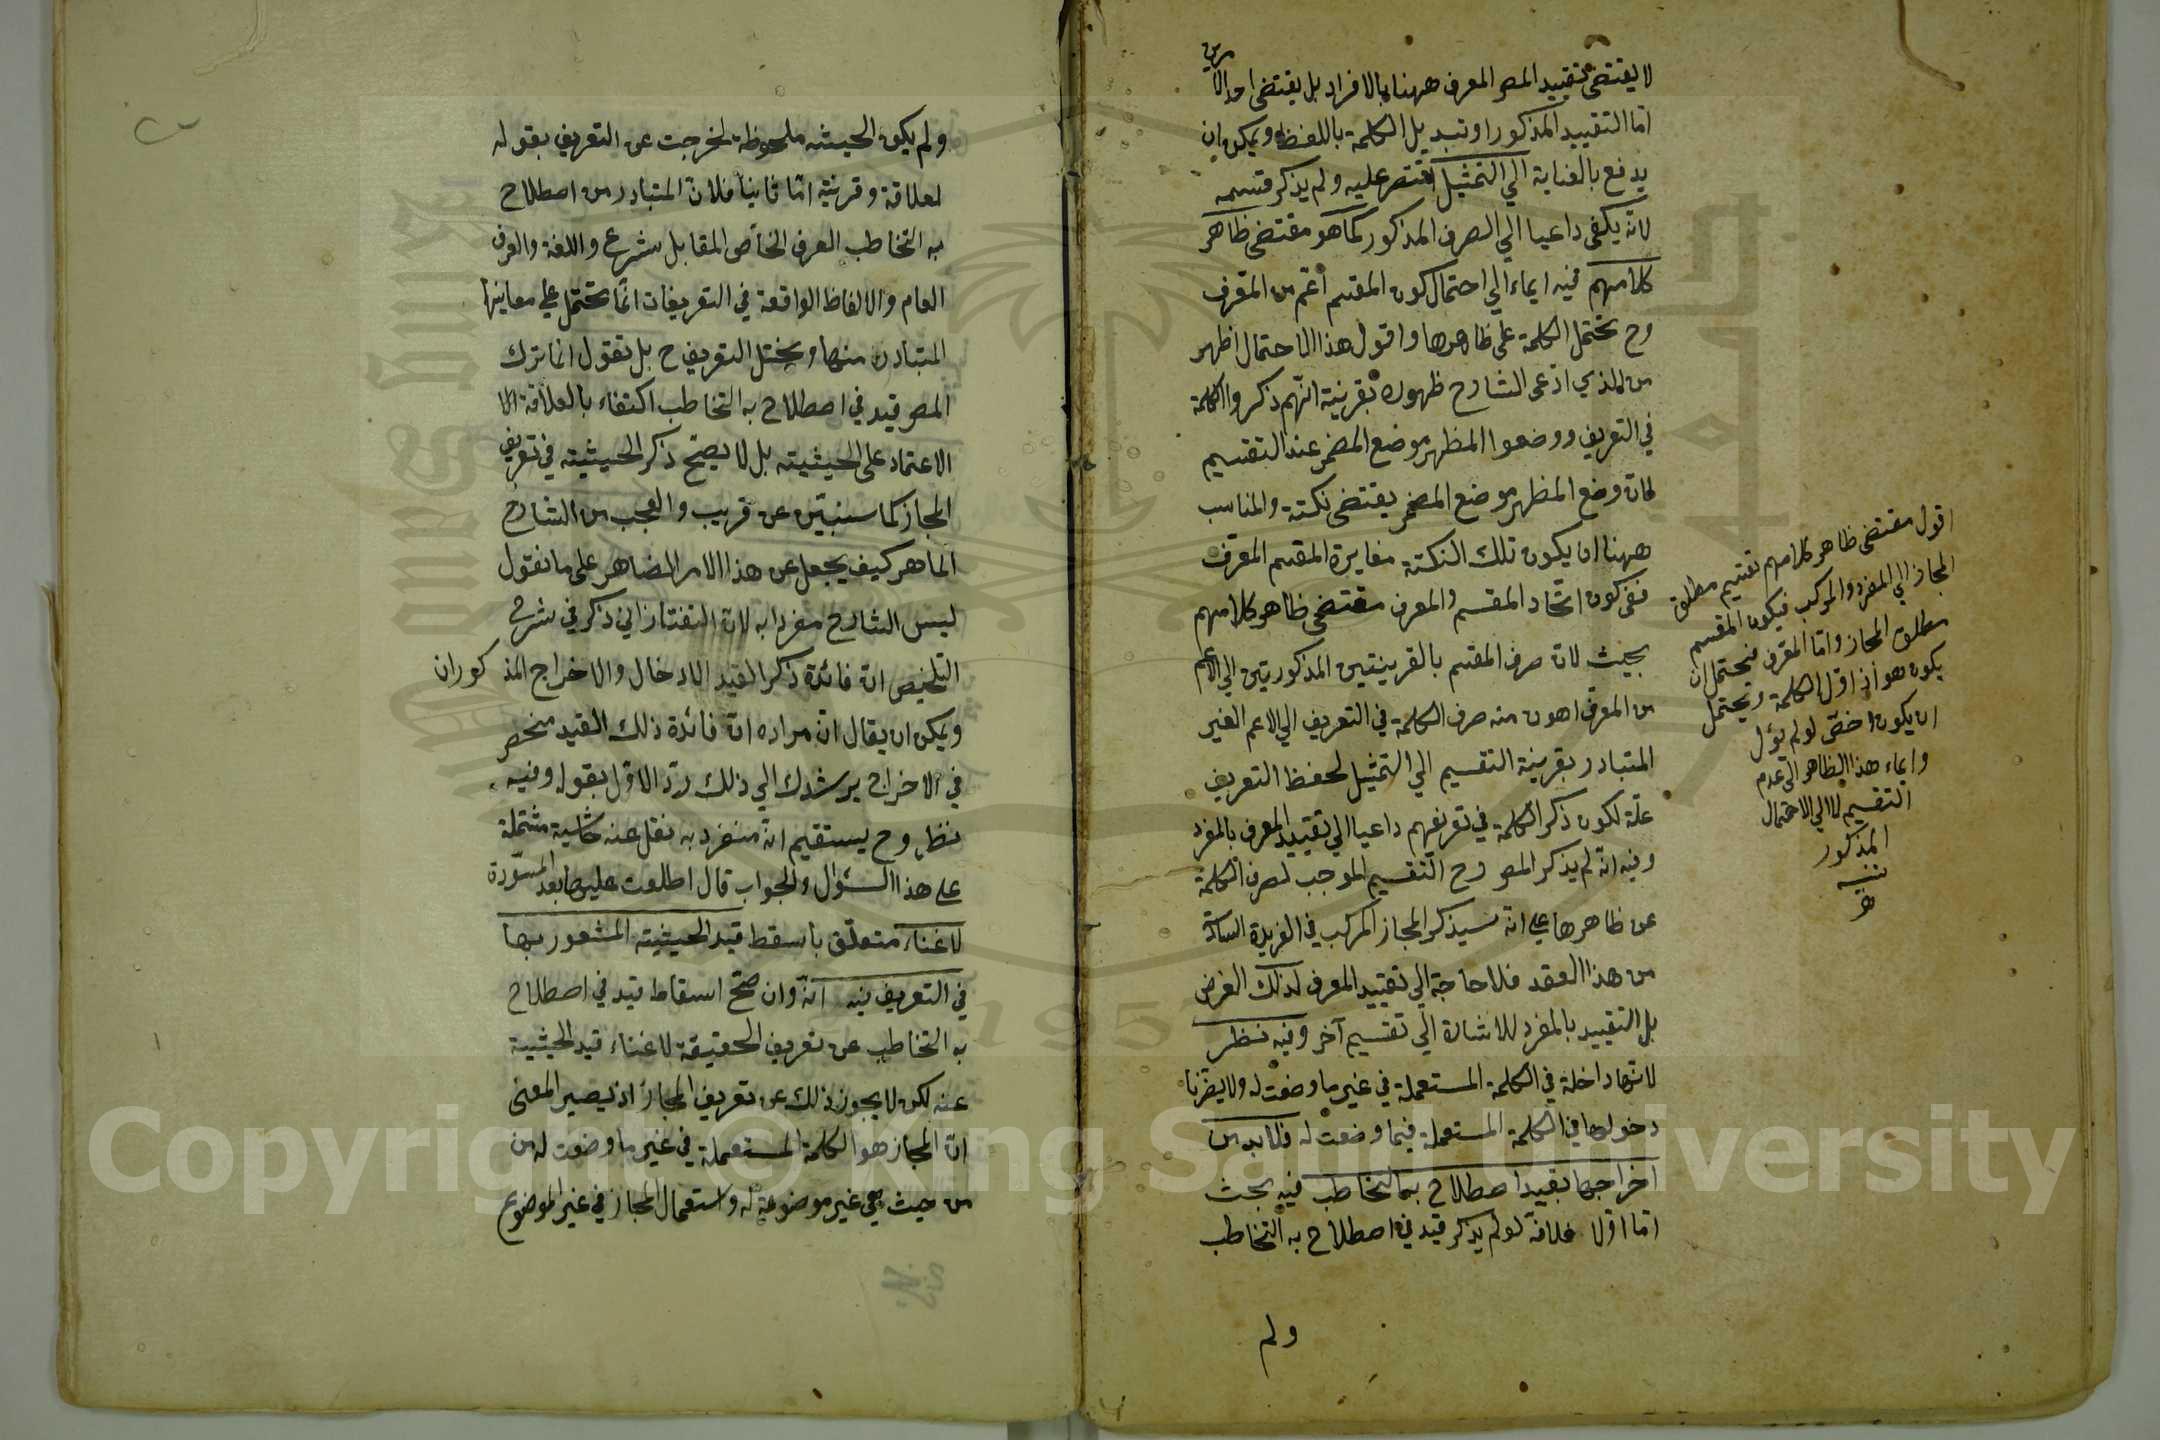 لا يقتضى تقييد المص المعرف ههنا بالافراد بل يقتضى احد الامرين
اما التقييد المذكور او تبديل الكلمة باللفظ ويمكن ان
يدفع بالعناية الي التمثيل اقتصر عليه ولم يذكر قسيمه
لانه يكفى داعيا الي الصرف المذكور كما هو مقتضى ظاهر
كلامهم فيه ايماء الي احتمال كون المقسم اعم من المعرف
وح تحتمل الكلمة على ظاهرها واقول هذا الاحتمال اظهر
من الذي ادعى الشارح ظهوره بقرينة انهم ذكروا الكلمة
في التعريف ووضعوا المظهر موضع المضمر عند التقسيم
لان وضع المظهر موضع المضمر يقتضى نكتة والمناسب
ههنا ان يكون تلك النكتة مغايرة المقسم المعرف
ففى كون اتحاد المقسم والمعرف مقتضى ظاهر كلامهم
بحيث لان صرف المقسم بالقرينتين المذكورتين الي الاعم
من المعرف اهون منه صرف الكلمة في التعريف الي الاعم الغير
المتبادر بقرينة التقسيم الي التمثيل لحفظ التعريف
علة لكون ذكر الكلمة في تعريفهم داعيا الي تقييد المعرف بالمفرد
وفيه انه لم يذكر المص وح التقسيم الموجب لصرف الكلمة
عن ظاهرها على انه سيذكر المجاز المركب في الفريدة السادسة
من هذا العقد فلا حاجة الي تقييد المعرف لذلك الغرض
بل التقييد بالمفرد للاشارة الي تقسيم آخر وفيه نظر
لانها داخلة في الكلمة المستعملة في غير ما وضعت له ولا يضرنا
دخولها في الكلمة المستعملة فيما وضعت له فلا بد من
اخراجها بقيد اصطلاح به التخاطب فيه بحث
اما اولا فلانه لو لم يذكر قيد في اصطلاح به التخاطب
ولم
اقول مقتضى ظاهر كلامهم تقسيم مطلق
المجاز الي المفرد والمركب فيكون المقسم
مطلق المجاز واما المعرف فيحتمل ان
يكون هو اذا اول الكلمة ويحتمل
ان يكون اخص لو لم يؤل
وايماء هذا الظاهر الى عدم
التقسيم لا الي الاحتمال
المذكور
منه
ولم يكن الحيثية ملحوظة لخرجت عن التعريف بقوله
لعلاقة وقرينة اما ثانيا فلان المتبادر من اصطلاح
به التخاطب العرف الخاص المقابل لشرع واللغة والعرف
العام والالفاظ الواقعة في التعريفات انما تحتمل على معانيها
المتبادر منها ويختل التعريف ح بل نقول انما ترك
المص قيد في اصطلاح به التخاطب اكتفاء بالعلاقة لا
الاعتماد على الحيثيته بل لا يصح ذكر الحيثيته في تعريف
المجاز كما سنبين عن قريب والعجب من الشارح
الماهر كيف يجعل عن هذا الامر الضاهر على ما نقول
ليس الشارح مفردا به لان التفتازاني ذكر في شرح
التلخيص ان فائدة ذكر القيد الادخال والاخراج المذكوران
ويمكن ان يقال ان مراده ان فائدة ذلك القيد منحصر
في الاخراج يرشدك الي ذلك رد الاول بقوله وفيه
نظر وح يستقيم انه منفرد به نقل عنه حاشية مشتملة
على هذا السئوال والجواب قال اطلعت عليها بعد المسودة
لاغناء متعلق باسقط قيد الحيثيته المشعور بها
في التعريف فيه انه وان صح اسقاط قيد في اصطلاح
به التخاطب عن تعريف الحقيقة لاغناء قيد الحيثية
عنه لكن لا يجوز ذلك عن تعريف المجاز اذ يصير المعنى
ان المجاز هو الكلمة المستعملة في غير ما وضعت له من
من حيث هي غير موضوعة له واستعمال المجاز في غير الموضوع
Copyright © King Saud University
1957